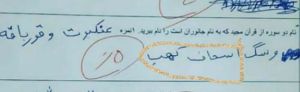 نام دو سوره از قرآن مجید که به نام جانوران است را نام ببرید. نمره
عنکبوت و قورباغه
و سگ اصحاب کهف
۰/۵